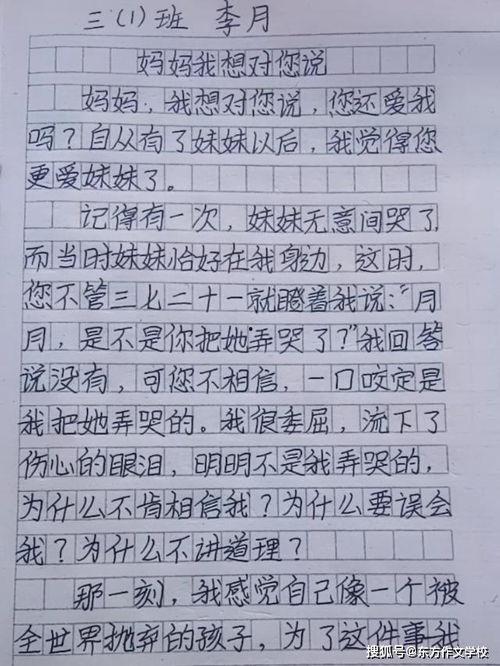 三（1）班 李月
妈妈我想对您说
妈妈，我想对您说，您还爱我
吗？自从有了妹妹以后，我觉得您
更爱妹妹了。
记得有一次，妹妹无意间哭了
而当时妹妹恰好在我身边，这时，
您不管三七二十一就瞪着我说：“月
月，是不是你把她弄哭了？”我回答
说没有，可您不相信，一口咬定是
我把她弄哭的。我很委屈，流下了
伤心的眼泪，明明不是我弄哭的，
为什么不肯相信我？为什么要误会
我？为什么不讲道理？
那一刻，我感觉自己像一个被
全世界抛弃的孩子，为了这件事我
搜狐号@东方作文学校